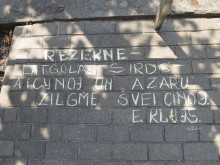 RĒZEKNE -
LATGOLAS SIRDS
AICYNOJ UN AZARU
ZILGMĒ SVEICINOJ.
E. KLUJS.